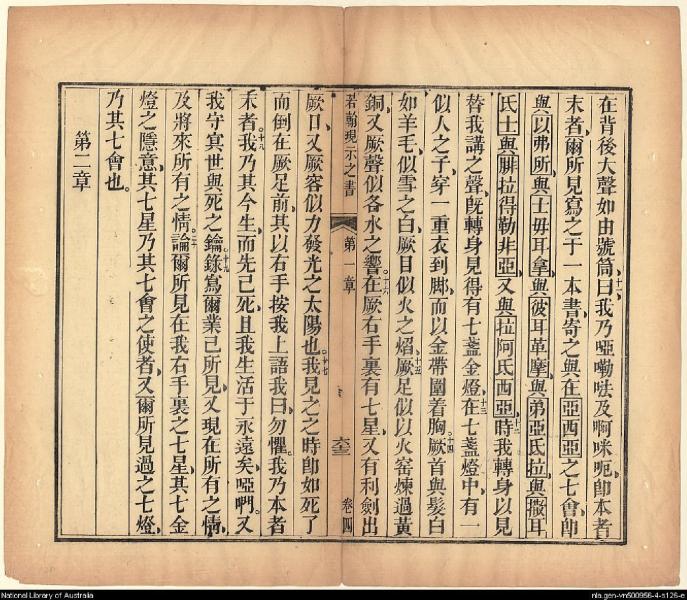 在背後大聲如由號筒十一曰我乃啞嘞㕵及啊咪呃卽本者
末者爾所見寫之于一本書寄之與在亞西亞之七會卽
與以弗所與士毋耳拿與彼耳革摩與弟亞氏拉與撒耳
氏士與腓拉得勒非亞又與拉阿氏西亞十二時我轉身以見
替我講之聲旣轉身見得有七盞金燈十三在七盞燈中有一
似人之子穿一重衣到脚而以金帶圍着胸十四厥首與髮白
如羊毛似雪之白厥目似火之熖十五厥足似以火窰煉過黃
銅又厥聲似各水之響十六在厥右手裏有七星又有利劍出
若翰現示之書 第一章 卷四
厥口又厥容似力發光之太陽也十七我見之之時卽如死了
而倒在厥足前其以右手按我上語我曰勿懼我乃本者
末者十八我乃其今生而先已死且我生活于永遠矣啞𠵽又
我守冥世與死之鑰十九錄寫爾業已所見又現在所有之情
及將來所有之情二十論爾所見在我右手裏之七星其七金
燈之隱意其七星乃其七會之使者又爾所見過之七燈
乃其七會也
第二章
National Library of Australia
nla.gen-vn500956-4-s126-e